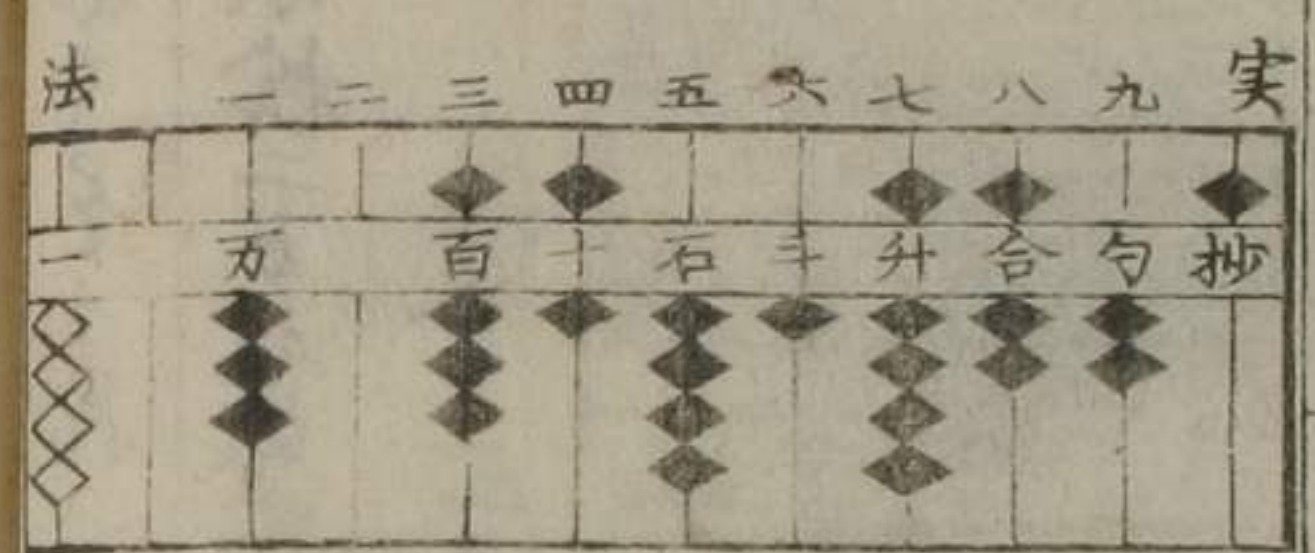 法 一 二 三 四 五 六 七 八 九 実
一 万 百 十 石 斗 升 合 勺 抄